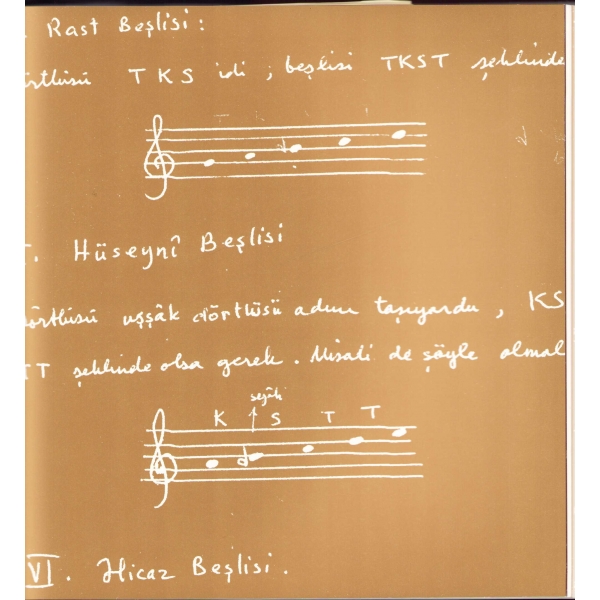 . Rast Beşlisi :
örtlüsü TKS idi ; beşlisi TKST şeklinde
T
. Hüseynî Beşlisi
dörtlüsü uşşâk dörtlüsü adını taşıyordu , KS
TT şeklinde olsa gerek . Misali de şöyle olmal
segâh
K S T T
VI . Hicaz Beşlisi .